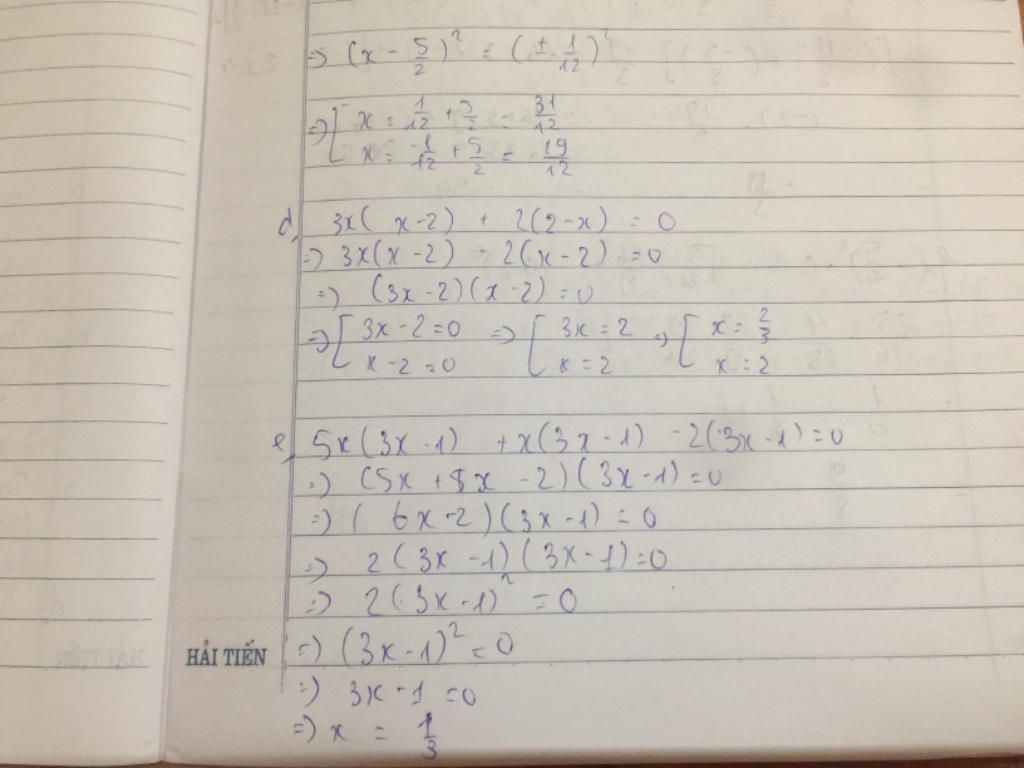 => (x - 5/2)² = (± 1/12)²
=> [ x = 1/12 + 5/2 = 31/12
x = -1/12 + 5/2 = 19/12
d, 3x( x-2) + 2(2-x) = 0
=> 3x(x-2) 2(x-2) = 0
=> (3x-2)(x-2) = 0
=> [ 3x-2=0 => [ 3x=2 => [ x = 2/3
x-2=0 x=2 x=2
e, 5x(3x-1) +x(3x-1) -2(3x-1)=0
=> (5x + x -2)(3x-1)=0
=> ( 6x-2)(3x-1)=0
=> 2(3x-1)(3x-1)=0
=> 2(3x-1)² =0
HẢI TIẾN => (3x-1)² =0
=> 3x-1=0
=> x = 1/3